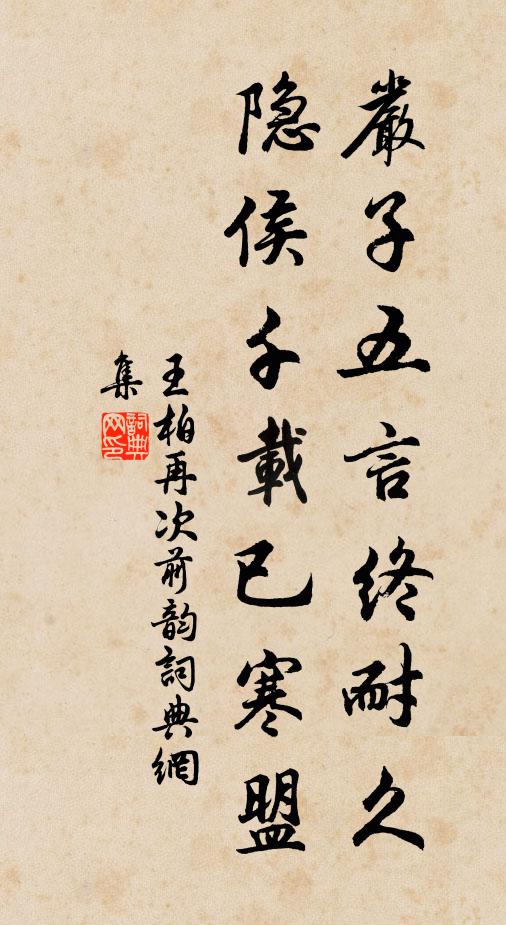 嚴子五言終耐久
隐侯千載已寒盟
王柏再次前韵詞典網
集
詞典网印